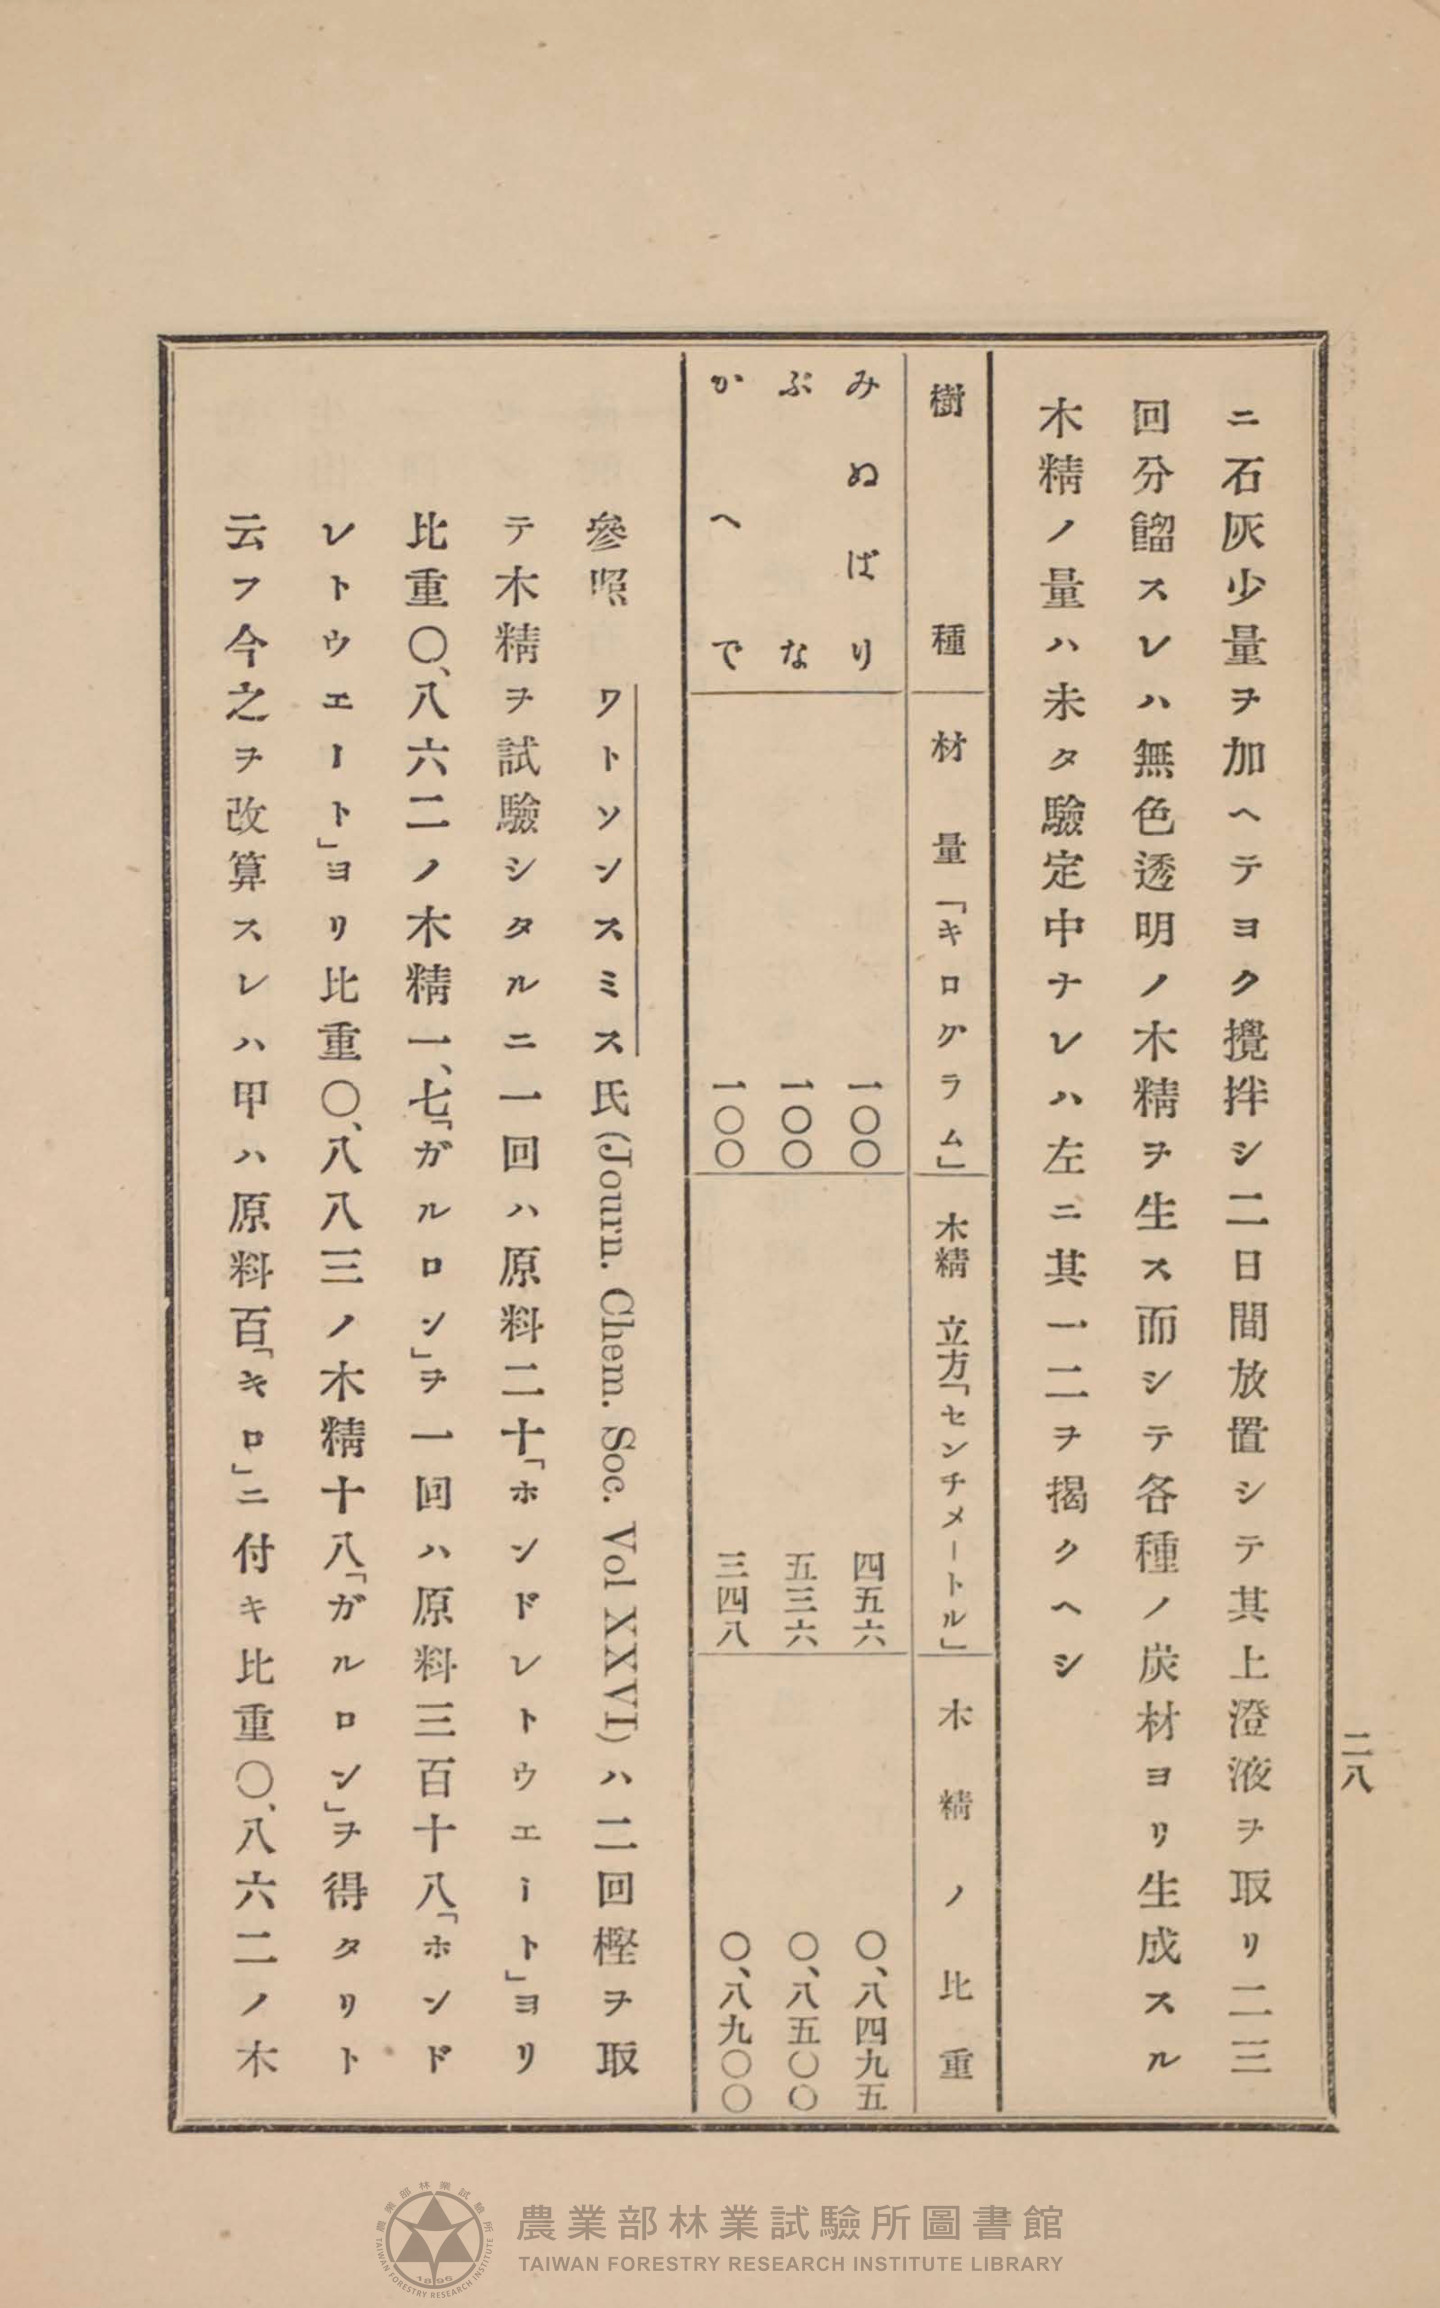 二八
ニ石灰少量ヲ加ヘテヨク攪拌シ二日間放置シテ其上澄液ヲ取リ二三
回分餾スレハ無色透明ノ木精ヲ生ス而シテ各種ノ炭材ヨリ生成スル
木精ノ量ハ未タ驗定中ナレハ左ニ其一二ヲ揭クヘシ
樹種 材量「キログラム」 木精 立方「センチメートル」 木精ノ比重
みぬばり 一〇〇 四五六 〇、八四九五
ぶな 一〇〇 五三六 〇、八五〇〇
かへで 一〇〇 三四八 〇、八九〇〇
參照 ワトソンスミス氏(Journ. Chem. Soc. Vol XXVI)ハ二回樫ヲ取
テ木精ヲ試驗シタルニ一回ハ原料二十「ホンドレトウエート」ヨリ
比重〇、八六二ノ木精一、七「ガルロン」ヲ一回ハ原料三百十八「ホンド
レトウエート」ヨリ比重〇、八八三ノ木精十八「ガルロン」ヲ得タリト
云フ今之ヲ改算スレハ甲ハ原料百「キロ」ニ付キ比重〇、八六二ノ木
農業部林業試驗所圖書館
TAIWAN FORESTRY RESEARCH INSTITUTE LIBRARY
農業部林業試驗所
TAIWAN FORESTRY RESEARCH INSTITUTE
1896